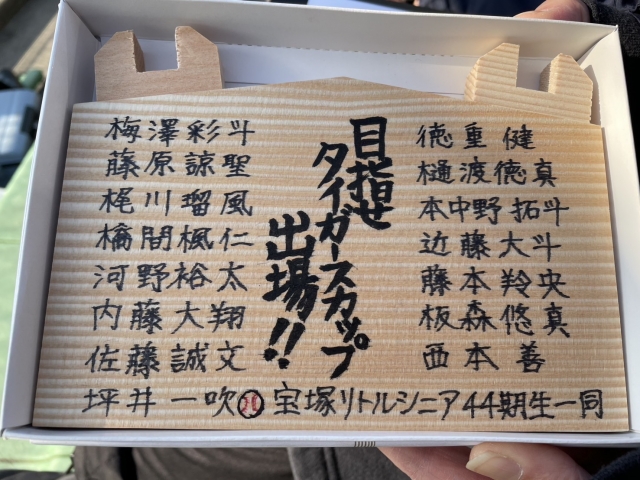 目指せ
タイガースカップ
出場!!
徳重 健
樋渡徳真
本中野拓斗
近藤大斗
藤本羚央
板森悠真
西本 善
梅澤彩斗
藤原諒聖
梶川瑠風
橋間楓仁
河野裕太
内藤大翔
佐藤誠文
坪井一吹
宝塚リトルシニア44期生一同